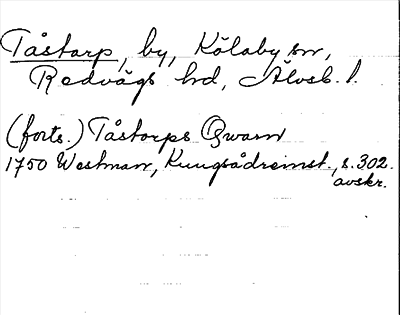 Tåstarp, by, Kölaby sn,
Redvägs hd, Älvsb. l.
(forts.) Tåstorps Qwarn
1750 Westman, Kungsådreinst., s. 302.
avskr.